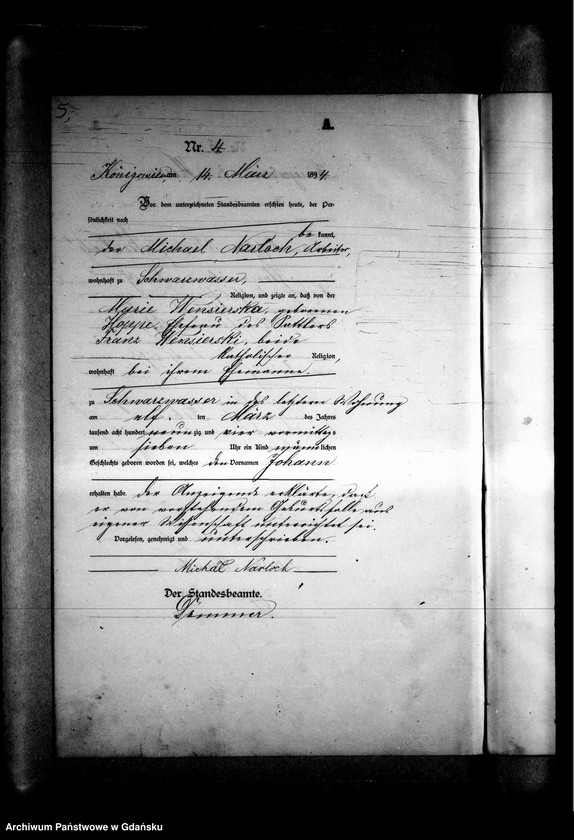 5,
A.
Nr. 4
am 14. März 1894.
Vor dem unterzeichneten Standesbeamten erschien heute, der Per-
sönlichkeit nach
be kannt,
der Michael Narloch, Arbeiter,
wohnhaft zu Schwarzwasser,
Religion, und zeigte an, daß von der
Marie Wensierska, geborenen
Hoppe, Ehefrau des Sattlers
Franz Wensierski, beide
katholischer Religion,
wohnhaft bei ihrem Ehemanne.
zu Schwarzwasser in des letztern Wohnung
am elf ten März des Jahres
tausend acht hundert neunzig und vier vormittags
um sieben Uhr ein Kind männlichen
Geschlechts geboren worden sei, welches den Vornamen Johann
erhalten habe. der Anzeigende erklärte, daß
er von vorstehendem Geburtsfalle aus
eigener Wissenschaft unterrichtet sei.
Vorgelesen, genehmigt und unterschrieben.
Michal Narloch
Der Standesbeamte.
Archiwum Państwowe w Gdańsku